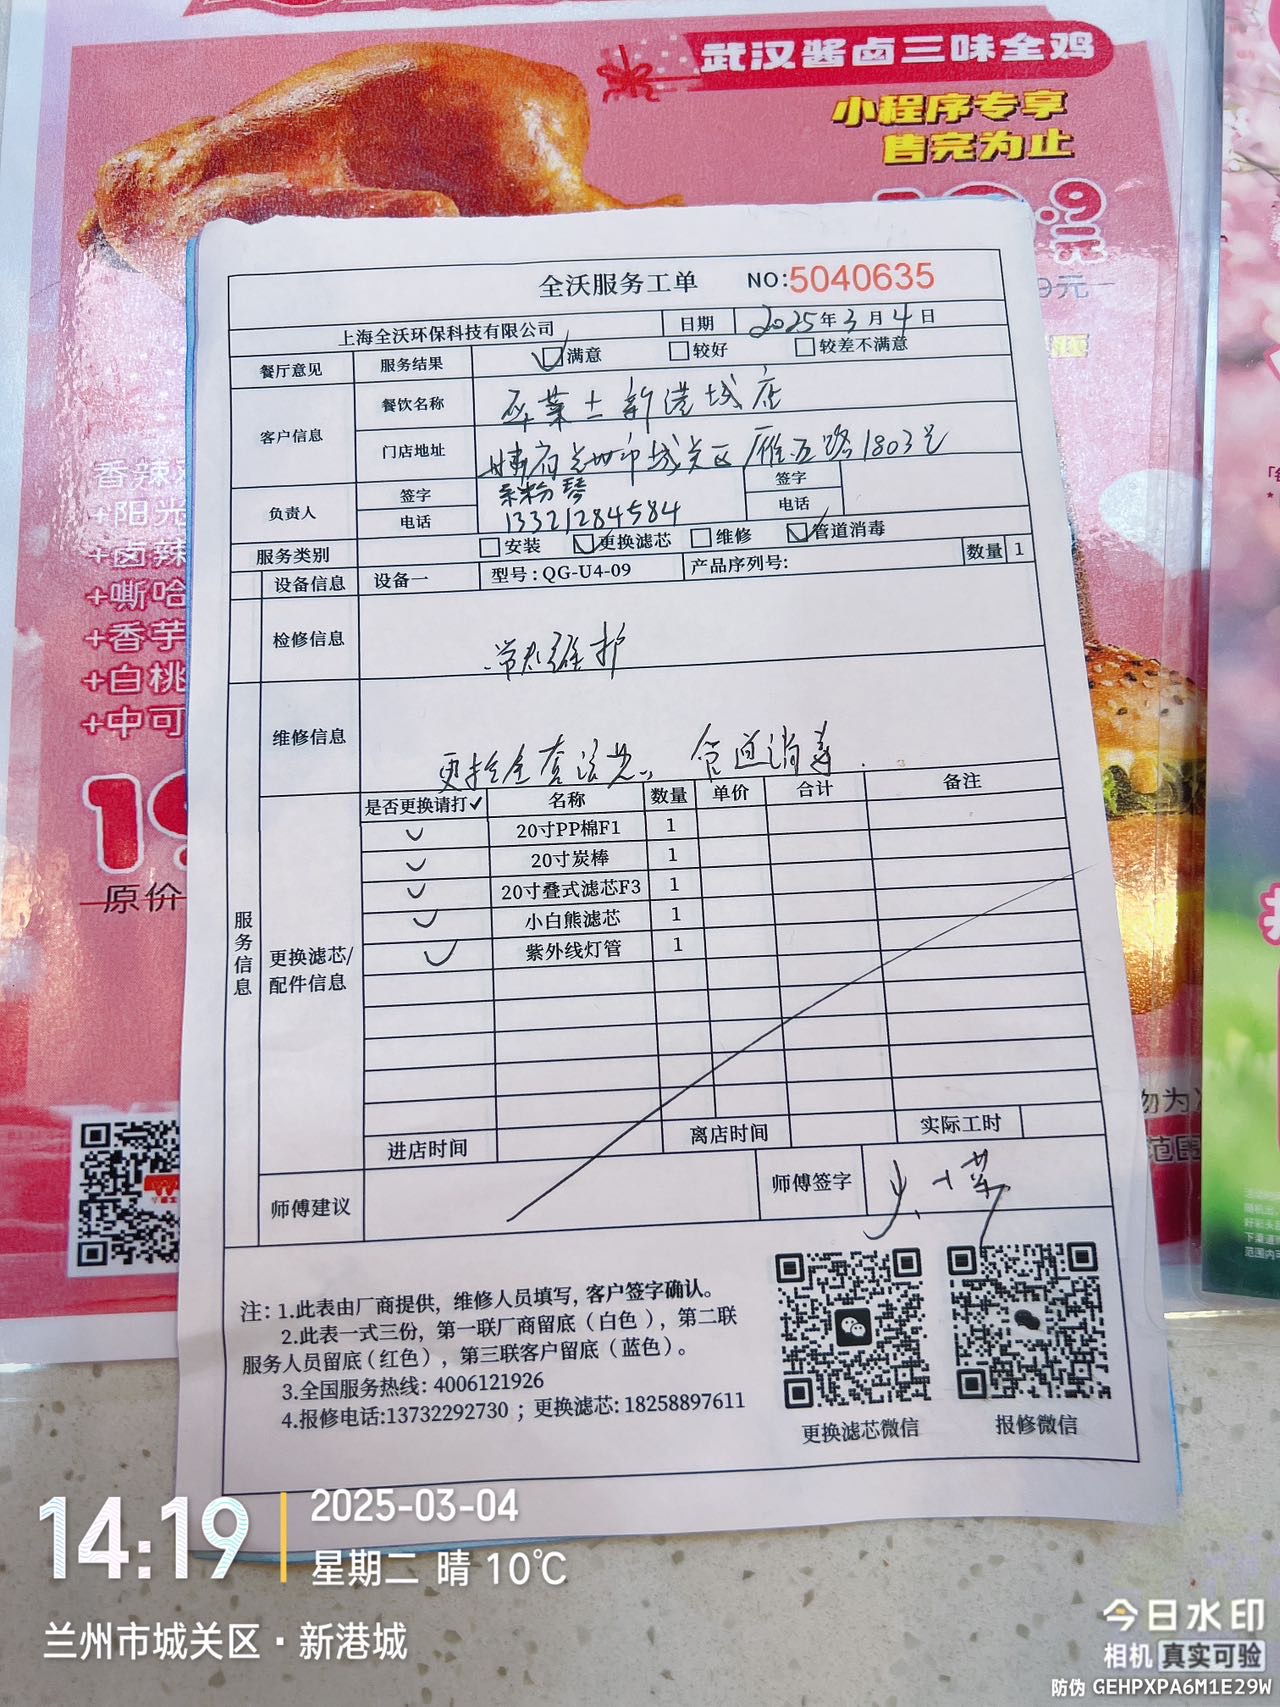 武汉酱卤三味全鸡
小程序专享
售完为止
.9元
9元
香辣
+阳光
+卤辣
+嘶哈
+香芋
+白桃
+中可
19
原价
全沃服务工单 NO:5040635
上海全沃环保科技有限公司 日期 2025年3月4日
餐厅意见 服务结果 ☑满意 □较好 □较差不满意
客户信息 餐饮名称 新港城店
门店地址 甘肃省兰州市城关区雁西路1803号
负责人 签字 签字
电话 13321284584 电话
服务类别 □安装 ☑更换滤芯 □维修 ☑管道消毒
设备信息 设备一 型号:QG-U4-09 产品序列号: 数量 1
检修信息 常规维护
维修信息 更换全套滤芯、管道消毒.
是否更换请打✓ 名称 数量 单价 合计 备注
✓ 20寸PP棉F1 1
✓ 20寸炭棒 1
✓ 20寸叠式滤芯F3 1
✓ 小白熊滤芯 1
✓ 紫外线灯管 1
服务信息
更换滤芯/
配件信息
进店时间 离店时间 实际工时
师傅建议 师傅签字
注: 1.此表由厂商提供, 维修人员填写, 客户签字确认。
2.此表一式三份, 第一联厂商留底(白色), 第二联
服务人员留底(红色), 第三联客户留底(蓝色)。
3.全国服务热线: 4006121926
4.报修电话:13732292730 ; 更换滤芯: 18258897611
更换滤芯微信 报修微信
14:19
2025-03-04
星期二 晴 10℃
兰州市城关区·新港城
今日水印
相机 真实可验
防伪 GEHPXPA6M1E29W